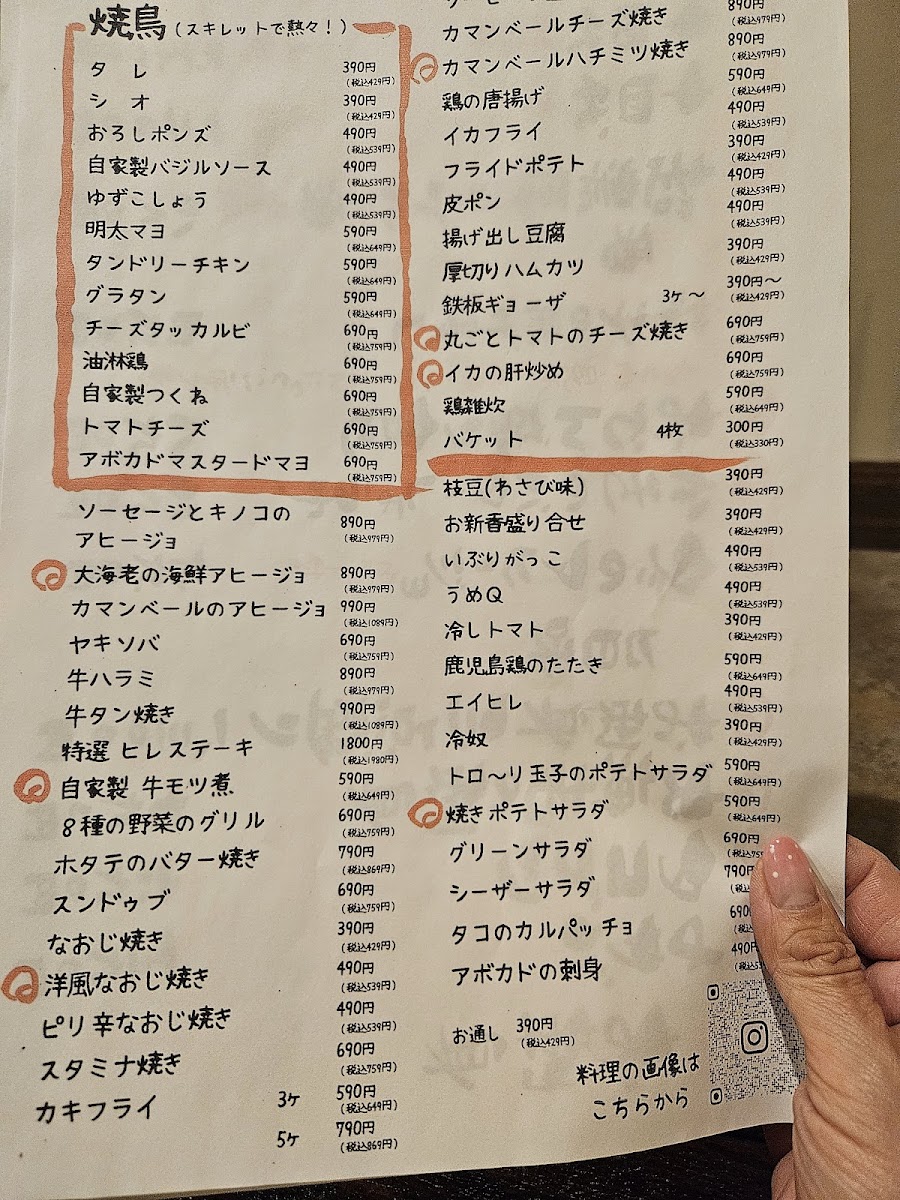 焼鳥(スキレットで熱々!)
タレ 390円
(税込429円)
シオ 390円
(税込429円)
おろしポンズ 490円
(税込539円)
自家製バジルソース 490円
(税込539円)
ゆずこしょう 490円
(税込539円)
明太マヨ 590円
(税込649円)
タンドリーチキン 590円
(税込649円)
グラタン 590円
(税込649円)
チーズタッカルビ 690円
(税込759円)
油淋鶏 690円
(税込759円)
自家製つくね 690円
(税込759円)
トマトチーズ 690円
(税込759円)
アボカドマスタードマヨ 690円
(税込759円)
ソーセージとキノコの
アヒージョ 890円
(税込979円)
大海老の海鮮アヒージョ 890円
(税込979円)
カマンベールのアヒージョ 990円
(税込1089円)
ヤキソバ 690円
(税込759円)
牛ハラミ 890円
(税込979円)
牛タン焼き 990円
(税込1089円)
特選 ヒレステーキ 1800円
(税込1980円)
自家製 牛モツ煮 590円
(税込649円)
8種の野菜のグリル 690円
(税込759円)
ホタテのバター焼き 790円
(税込869円)
スンドゥブ 690円
(税込759円)
なおじ焼き 390円
(税込429円)
洋風なおじ焼き 490円
(税込539円)
ピリ辛なおじ焼き 490円
(税込539円)
スタミナ焼き 690円
(税込759円)
カキフライ 3ケ 590円
(税込649円)
5ケ 790円
(税込869円)
カマンベールチーズ焼き 890円
(税込979円)
カマンベールハチミツ焼き 890円
(税込979円)
鶏の唐揚げ 590円
(税込649円)
イカフライ 490円
(税込539円)
フライドポテト 390円
(税込429円)
皮ポン 490円
(税込539円)
揚げ出し豆腐 490円
(税込539円)
厚切りハムカツ 390円
(税込429円)
鉄板ギョーザ 3ケ〜 390円〜
(税込429円)
丸ごとトマトのチーズ焼き 690円
(税込759円)
イカの肝炒め 690円
(税込759円)
鶏雑炊 590円
(税込649円)
バケット 4枚 300円
(税込330円)
枝豆(わさび味) 390円
(税込429円)
お新香盛り合せ 390円
(税込429円)
いぶりがっこ 490円
(税込539円)
うめQ 490円
(税込539円)
冷しトマト 390円
(税込429円)
鹿児島鶏のたたき 590円
(税込649円)
エイヒレ 490円
(税込539円)
冷奴 390円
(税込429円)
トロ〜リ玉子のポテトサラダ 590円
(税込649円)
焼きポテトサラダ 590円
(税込649円)
グリーンサラダ 690円
シーザーサラダ 790円
タコのカルパッチョ 690
アボカドの刺身 490
お通し 390円
(税込429円)
料理の画像は
こちらから